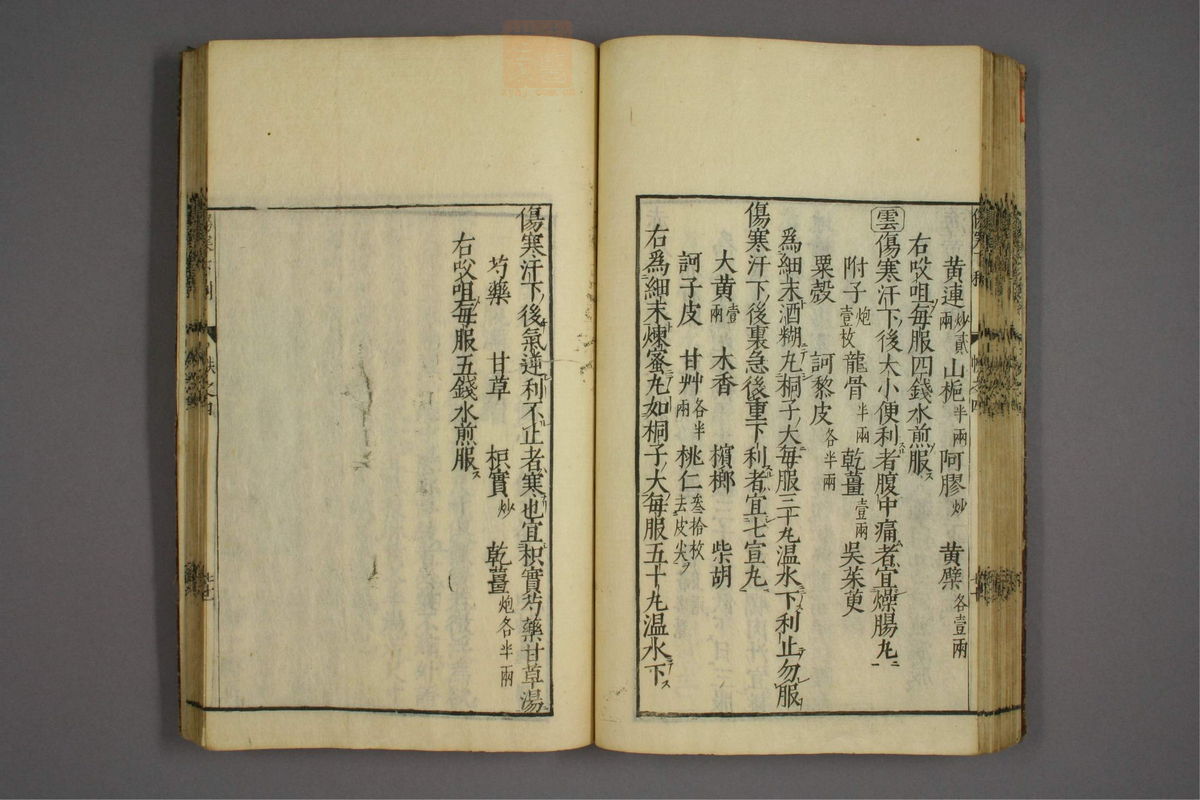 黄連炒貳兩山梔半兩阿膠炒黄蘗各壹兩
右㕮咀每服四錢水煎服
雲傷寒汗下後大小便利者腹中痛者宜燥腸丸
附子炮壹枚龍骨半兩乾薑壹兩吳茱萸
粟殼訶黎皮各半兩
爲細末酒糊丸桐子大每服三十丸温水下利止勿服
傷寒汗下後裏急後重下利者宜七宣丸
大黄壹兩木香檳榔柴胡
訶子皮甘艸各半兩桃仁叄拾枚去皮尖
右爲細末煉蜜丸如桐子大每服五十丸温水下
傷寒汗下後氣逆利不止者寒也宜枳實芍藥甘草湯
芍藥甘草枳實炒乾薑炮各半兩
右㕮咀每服五錢水煎服